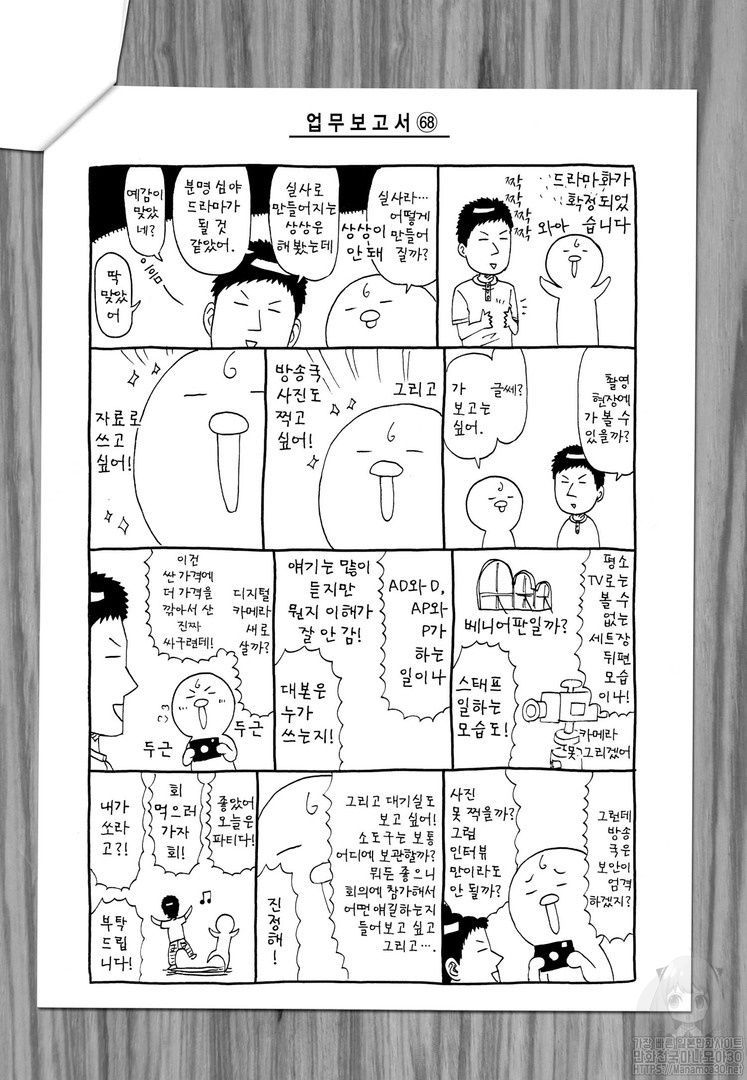 업무보고서 68
드라마화가
확정되었
습니다
짝
짝
짝
짝
와아
실사라…
어떻게
만들어
질까?
상상이
안 돼
실사로
만들어지는
상상은
해 봤는데
분명 심야
드라마가
될 것
같았어.
예감이
맞았
네?
딱
맞았
어
촬영
현장에
가 볼 수
있을까?
글쎄?
가
보고는
싶어.
그리고
방송국
사진도
찍고
싶어!
자료로
쓰고
싶어!
평소
TV로는
볼 수
없는
세트장
뒤편
모습
이나!
베니어판일까?
스태프
일하는
모습도!
카메라
못 그리겠어
AD와 D,
AP와
P가
하는
일이나
얘기는 많이
듣지만
뭔지 이해가
잘 안 감!
대본은
누가
쓰는지!
디지털
카메라
새로
살까?
이건
싼 가격에
더 가격을
깎아서 산
진짜
싸구련데!
두근
두근
그런데
방송
국은
보안이
엄격
하겠지?
사진
못 찍을까?
그럼
인터뷰
만이라도
안 될까?
그리고 대기실도
보고 싶어!
소도구는 보통
어디에 보관할까?
뭐든 좋으니
회의에 참가해서
어떤 얘길하는지
들어보고 싶고
그리고….
진
정
해!
좋았어
오늘은
파티다!
회
먹으러
가자
회!
내가
쏘라
고?!
부탁
드립
니다!
가장 빠른 일본만화사이트
만화천국 마나모아30
HTTPS://Manamoa30.com